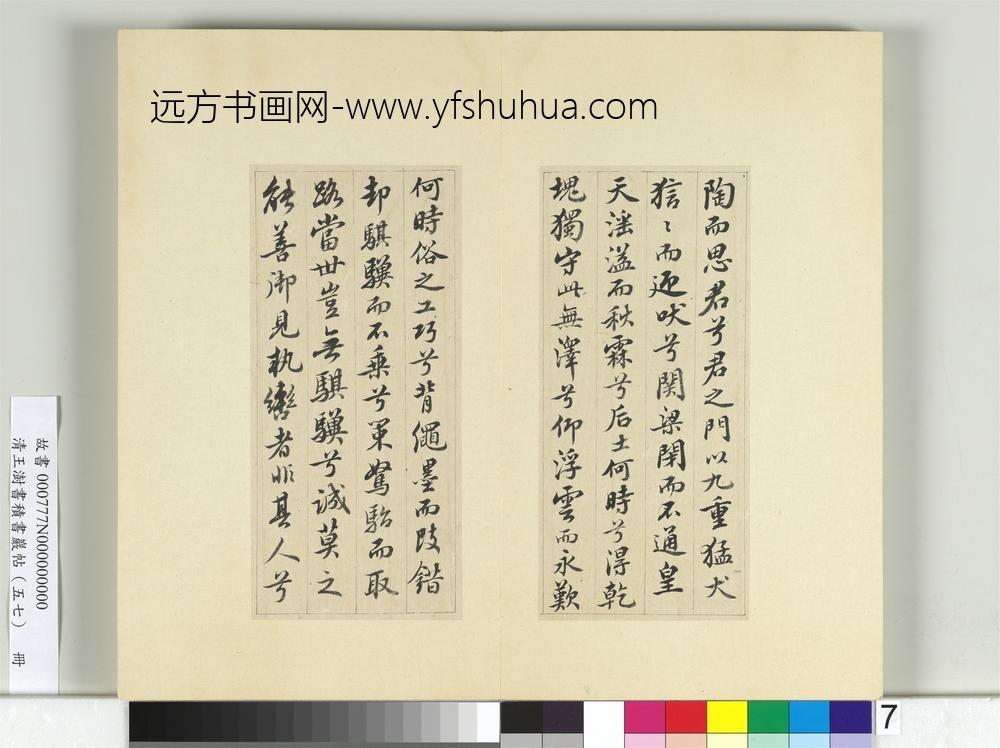 远方书画网-www.yfshuhua.com
陶而思君兮君之門以九重猛犬
狺〻而迎吠兮關梁閉而不通皇
天滛溢而秋霖兮后土何時兮得乾
塊獨守此無澤兮仰浮雲而永歎
何時俗之工巧兮背繩墨而改錯
却騏驥而不乗兮策駑駘而取
路當世豈無騏驥兮誠莫之
能善御見執轡者非其人兮
故書 000777N000000000
清王澍書積書巖帖（五七） 冊
7